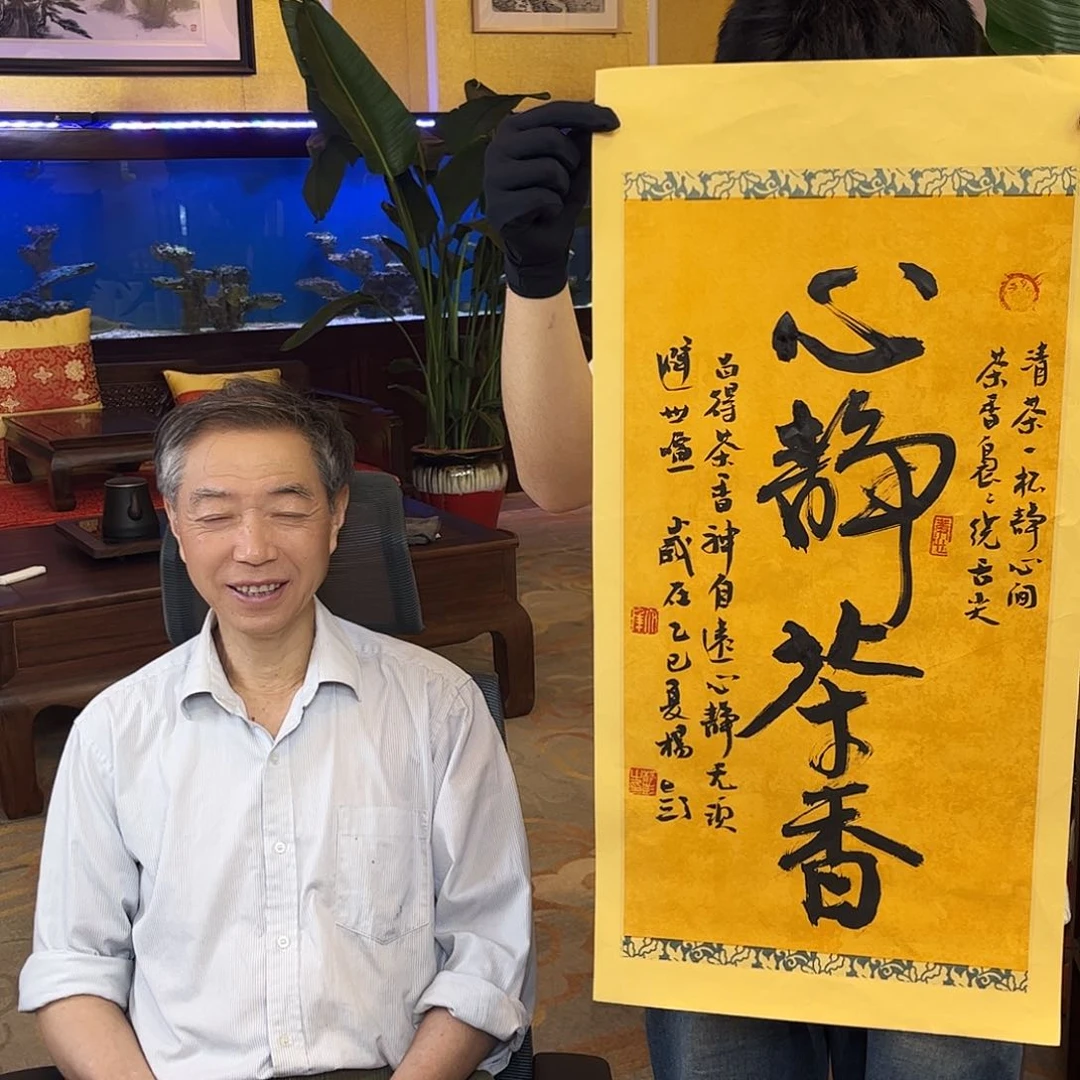 清茶一杯静心间
茶香袅袅绕舌尖
心静茶香
品得茶香神自远心静无须
避世喧 岁在乙巳夏杨